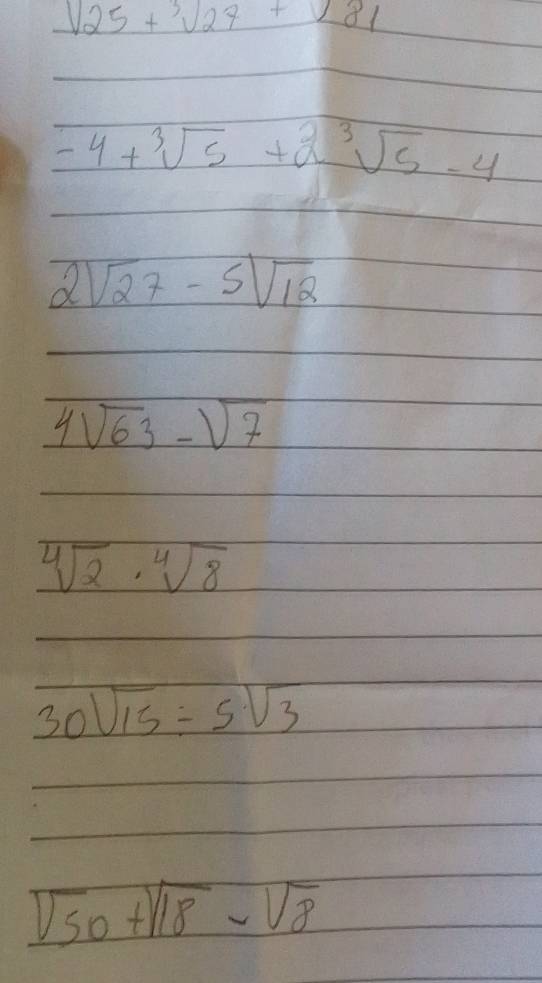 √25 + ³√27 + √81
-4 + ³√5 + 2 ³√5 - 4
2√27 - 5√12
4√63 - √7
⁴√2 . ⁴√8
30√15 ÷ 5√3
√50 + √18 - √8